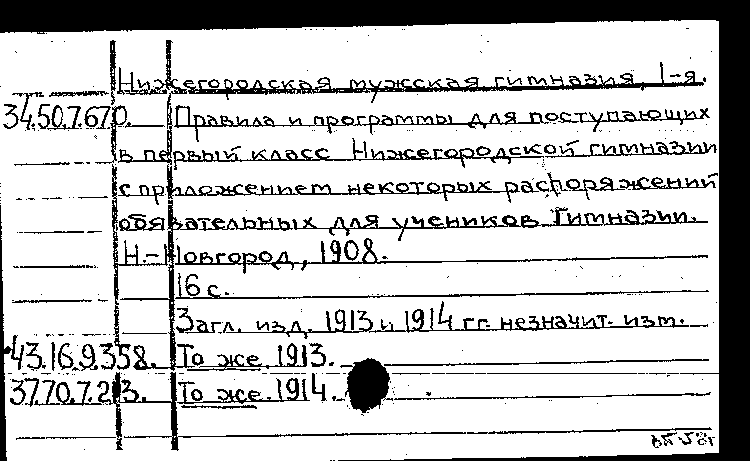 Нижегородская мужская гимназия, 1-я.
34.50.7.670. Правила и программы для поступающих
в первый класс Нижегородской гимназии
с приложением некоторых распоряжений
обязательных для учеников Гимназии.
Н.-Новгород, 1908.
16 с.
Загл. изд. 1913 и 1914 гг. незначит. изм.
43.16.9.358. То же. 1913.
37.70.7.213. То же. 1914.